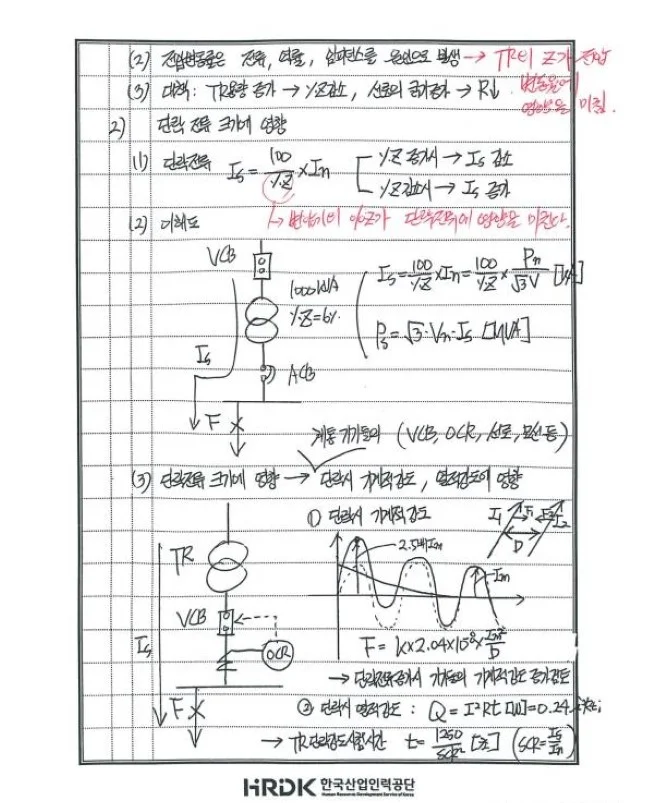 (2) 전압변동률은 전류, 역률, 임피던스를 원인으로 발생 → TR의 Z가 전압변동률에 영향을 미침.
(3) 대책 : TR용량 증가 → %Z감소, 선로의 굵기증가 → R↓
2) 단락 전류 크기에 영향
(1) 단락전류 Is = 100/%Z × In
%Z 증가시 → Is 감소
%Z 감소시 → Is 증가
↳ 변압기의 %Z가 단락전류에 영향을 미친다.
(2) 이해도
VCB
1000kVA
%Z=6%
Is
ACB
F
Is = 100/%Z × In = 100/%Z × Pn/√3V [kA]
Ps = √3·Vn·Is [MVA]
계통 기기들의 (VCB, OCR, 선로, 모선 등)
(3) 단락전류 크기에 영향 → 단락시 기계적강도, 열적강도에 영향
① 단락시 기계적강도
TR
VCB
OCR
Is
F
2.5배Im
Im
I1
D
F = K×2.04×10⁻⁸× Im²/D
→ 단락전류증가시 기기들의 기계적강도 증가검토
② 단락시 열적강도 : Q = I²Rt [W] = 0.24
→ TR단락강도시험시간 t = 1250/SCR² [초] (SCR = Is/In)
HRDK 한국산업인력공단
Human Resources Development Service of Korea